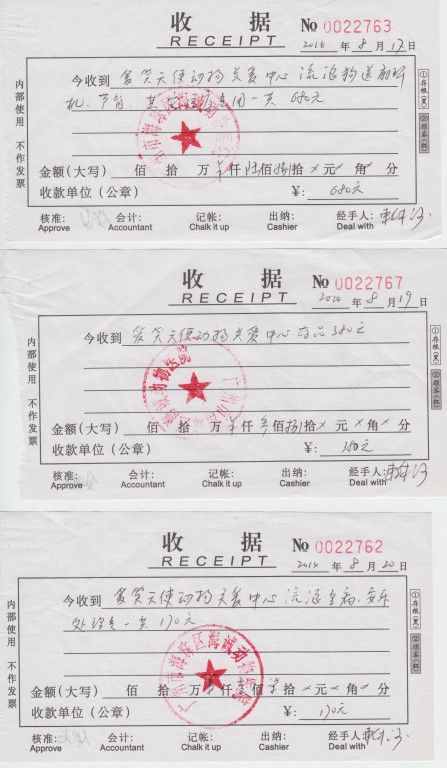 收 据
RECEIPT
No 0022763
2014 年 8 月 17 日
今收到 爱笑天使动物关爱中心 流浪狗
一共 680元
金额(大写) 佰 拾 万 仟 陆佰捌拾 元 角 分
收款单位(公章) ¥: 680元
核准: Approve
会计: Accountant
记帐: Chalk it up
出纳: Cashier
经手人: Deal with
内部使用 不作发票
①存根(黑)
②顾客(红)
收 据
RECEIPT
No 0022767
2014 年 8 月 19 日
今收到 爱笑天使动物关爱中心 380元
金额(大写) 佰 拾 万 仟 佰捌拾 元 角 分
收款单位(公章) ¥: 380元
核准: Approve
会计: Accountant
记帐: Chalk it up
出纳: Cashier
经手人: Deal with
内部使用 不作发票
①存根(黑)
②顾客(红)
收 据
RECEIPT
No 0022762
2014 年 8 月 20 日
今收到 爱笑天使动物关爱中心 流浪
一共 170元
金额(大写) 佰 拾 万 仟 壹佰 拾 元 角 分
收款单位(公章) ¥: 170元
核准: Approve
会计: Accountant
记帐: Chalk it up
出纳: Cashier
经手人: Deal with
内部使用 不作发票
①存根(黑)
②顾客(红)